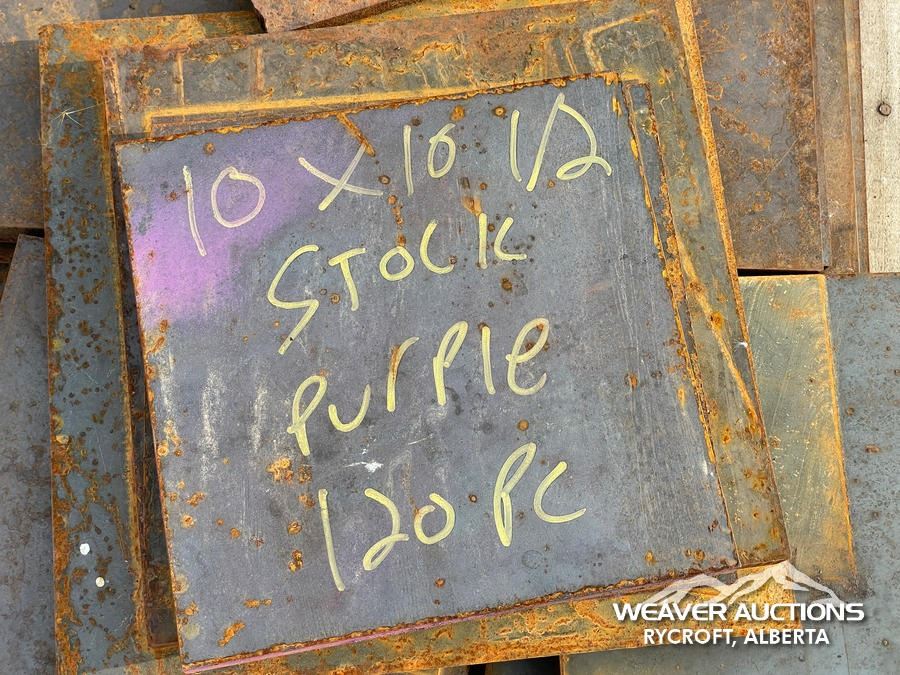 10 X 10 1/2
STOCK
PurPle
120 PC
WEAVER AUCTIONS
RYCROFT, ALBERTA